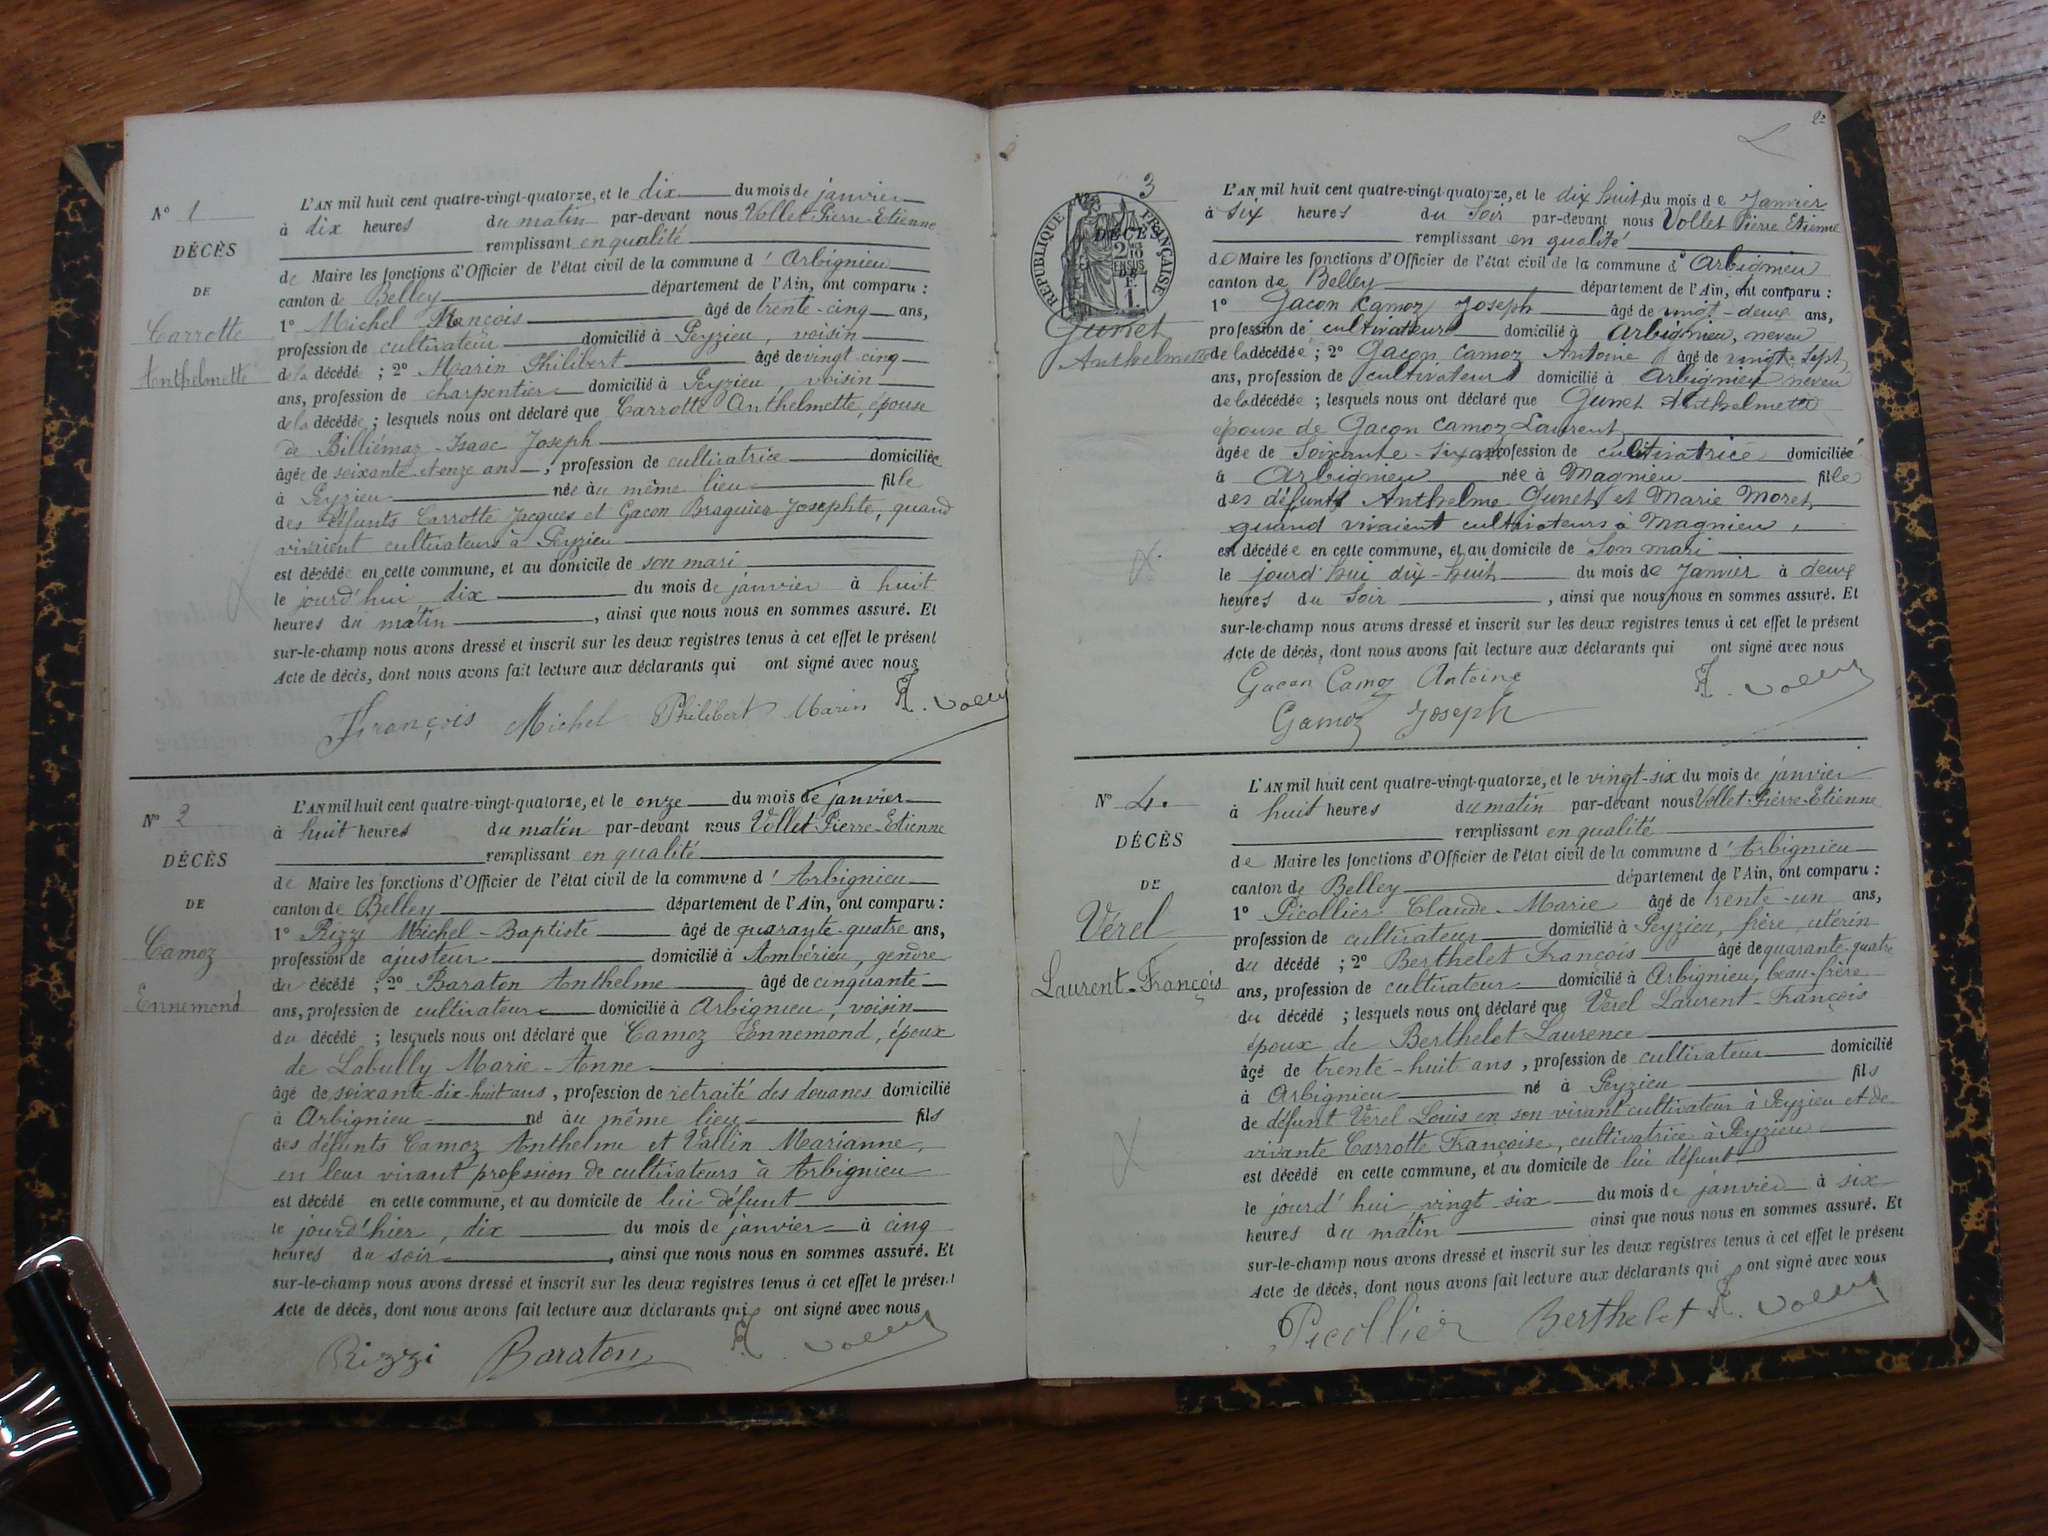 L'AN mil huit cent quatre-vingt-quatorze, et le dix du mois de janvier
N° 1
à dix heures du matin par-devant nous Vollet Pierre-Etienne
remplissant en qualité
DÉCÈS
de Maire les fonctions d'Officier de l'état civil de la commune d'Arbignieu
DE
canton de Belley département de l'Ain, ont comparu :
1° Michel François âgé de trente-cinq ans,
Carrotte
profession de cultivateur domicilié à Peyzieu, voisin
de la décédée ; 2° Marin Philibert âgé de vingt cinq
Anthelmette
ans, profession de charpentier domicilié à Peyzieu, voisin
de la décédée ; lesquels nous ont déclaré que Carrotte Anthelmette, épouse
de Billiémaz-Isaac Joseph
âgée de soixante et onze ans, profession de cultivatrice domiciliée
à Peyzieu née au même lieu fille
des défunts Carrotte Jacques et Gacon Braguier Josephte, quand
vivaient cultivateurs à Peyzieu
est décédée en cette commune, et au domicile de son mari
le jourd'hui dix du mois de janvier à huit
heures du matin, ainsi que nous nous en sommes assuré. Et
sur-le-champ nous avons dressé et inscrit sur les deux registres tenus à cet effet le présent
Acte de décès, dont nous avons fait lecture aux déclarants qui ont signé avec nous
François Michel Philibert Marin
L'AN mil huit cent quatre-vingt-quatorze, et le onze du mois de janvier
N° 2
à huit heures du matin par-devant nous Vollet Pierre-Etienne
remplissant en qualité
DÉCÈS
de Maire les fonctions d'Officier de l'état civil de la commune d'Arbignieu
DE
canton de Belley département de l'Ain, ont comparu :
1° Rizzi Michel-Baptiste âgé de quarante-quatre ans,
Camoz
profession de ajusteur domicilié à Ambérieu, gendre
du décédé ; 2° Baraton Anthelme âgé de cinquante
Ennemond
ans, profession de cultivateur domicilié à Arbignieu, voisin
du décédé ; lesquels nous ont déclaré que Camoz Ennemond, époux
de Labully Marie-Anne
âgé de soixante-dix-huit ans, profession de retraité des douanes domicilié
à Arbignieu né au même lieu fils
des défunts Camoz Anthelme et Vallin Marianne,
en leur vivant profession de cultivateurs à Arbignieu
est décédé en cette commune, et au domicile de lui défunt
le jourd'hier, dix du mois de janvier à cinq
heures du soir, ainsi que nous nous en sommes assuré. Et
sur-le-champ nous avons dressé et inscrit sur les deux registres tenus à cet effet le présent
Acte de décès, dont nous avons fait lecture aux déclarants qui ont signé avec nous
Rizzi Baraton
2
3
L'AN mil huit cent quatre-vingt-quatorze, et le dix huit du mois de Janvier
à six heures du Soir par-devant nous Vollet Pierre Etienne
remplissant en qualité
RÉPUBLIQUE FRANÇAISE
DÉCÈS
DE
de Maire les fonctions d'Officier de l'état civil de la commune d'Arbignieu
canton de Belley département de l'Ain, ont comparu :
1° Gacon Camoz Joseph âgé de vingt-deux ans,
Junet
profession de cultivateur domicilié à Arbignieu, neveu
Anthelmette
de la décédée ; 2° Gacon Camoz Antoine âgé de vingt-sept
ans, profession de cultivateur domicilié à Arbignieu neveu
de la décédée ; lesquels nous ont déclaré que Junet Anthelmette
épouse de Gacon Camoz Laurent
âgée de Soixante-Six ans profession de cultivatrice domiciliée
à Arbignieu née à Magnieu fille
des défunts Anthelme Junet, et Marie Moret,
quand vivaient cultivateurs à Magnieu,
est décédée en cette commune, et au domicile de Son mari
le jourd'hui dix-huit du mois de Janvier à deux
heures du Soir, ainsi que nous nous en sommes assuré. Et
sur-le-champ nous avons dressé et inscrit sur les deux registres tenus à cet effet le présent
Acte de décès, dont nous avons fait lecture aux déclarants qui ont signé avec nous
Gacon Camoz Antoine
Gamoz Joseph
L'AN mil huit cent quatre-vingt-quatorze, et le vingt-six du mois de janvier
N° 4
à huit heures du matin par-devant nous Vollet Pierre-Etienne
remplissant en qualité
DÉCÈS
de Maire les fonctions d'Officier de l'état civil de la commune d'Arbignieu
DE
canton de Belley département de l'Ain, ont comparu :
1° Picollier Claude-Marie âgé de trente-un ans,
Vérel
profession de cultivateur domicilié à Peyzieu, frère utérin
du décédé ; 2° Berthelet François âgé de quarante-quatre
Laurent-François
ans, profession de cultivateur domicilié à Arbignieu, beau-frère
du décédé ; lesquels nous ont déclaré que Vérel Laurent-François
époux de Berthelet Laurence
âgé de trente-huit ans, profession de cultivateur domicilié
à Arbignieu né à Peyzieu fils
de défunt Vérel Louis en son vivant cultivateur à Peyzieu et de
vivante Carrotte Françoise, cultivatrice à Peyzieu
est décédé en cette commune, et au domicile de lui défunt
le jourd'hui vingt six du mois de janvier à six
heures du matin ainsi que nous nous en sommes assuré. Et
sur-le-champ nous avons dressé et inscrit sur les deux registres tenus à cet effet le présent
Acte de décès, dont nous avons fait lecture aux déclarants qui ont signé avec nous
Picollier Berthelet